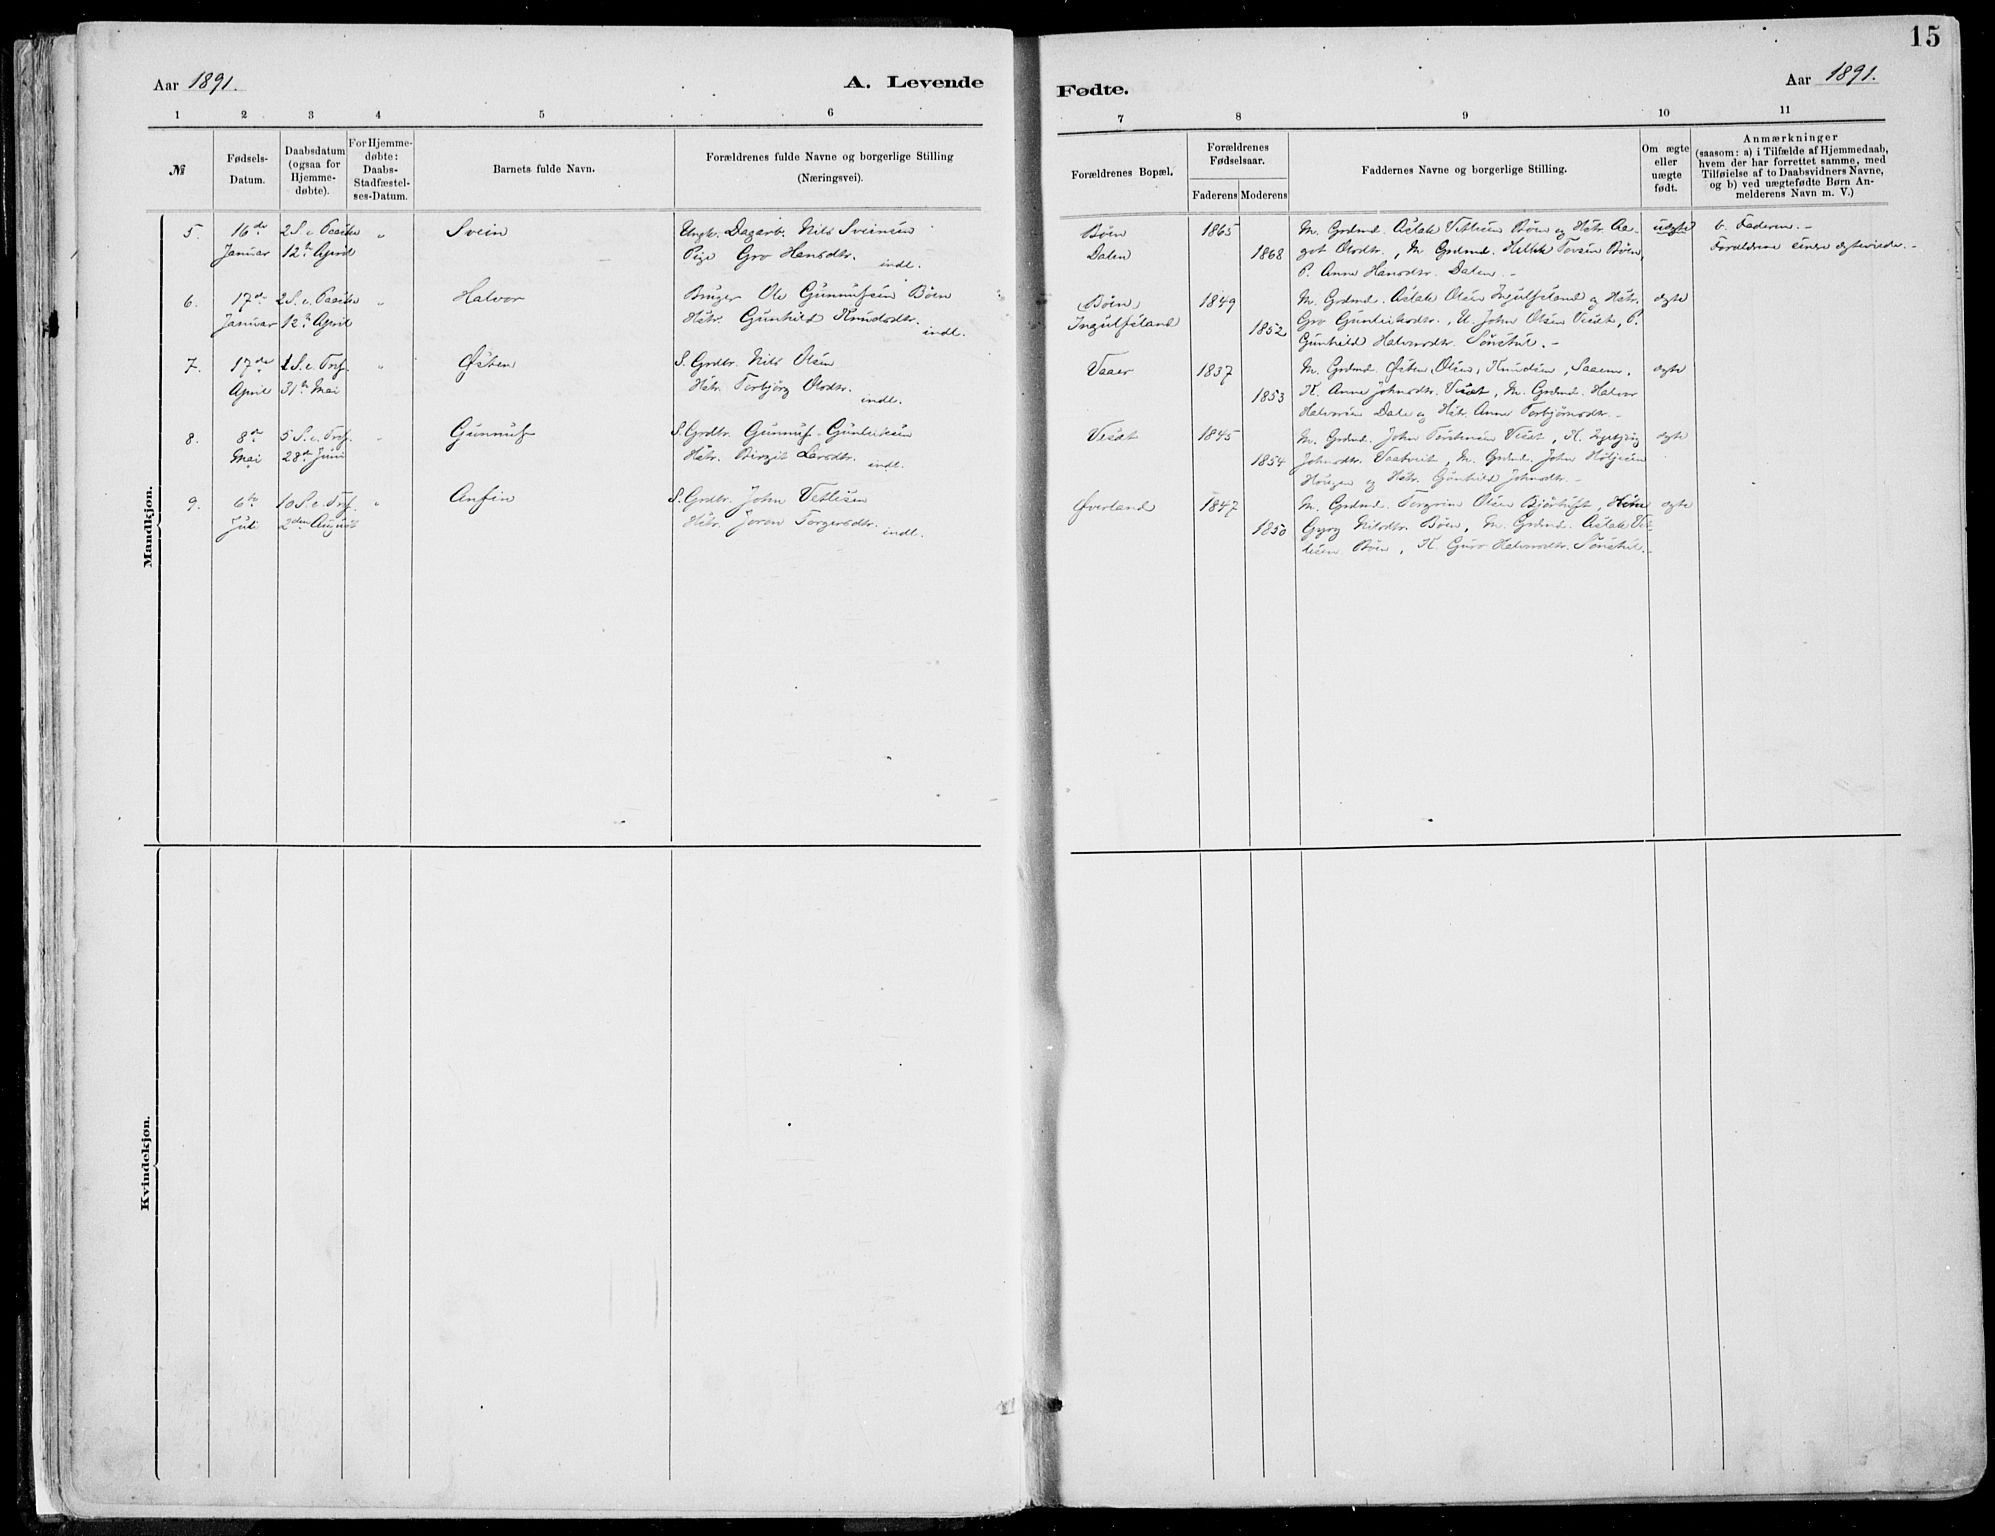 15
Aar 1891.
A. Levende
Fødte.
Aar 1891.
1 2 3 4 5 6
7 8 9 10 11
№
Fødsels-
Datum.
Daabsdatum
(ogsaa for
Hjemme-
døbte).
For Hjemme-
døbte:
Daabs-
Stadfæstel-
ses-Datum.
Barnets fulde Navn.
Forældrenes fulde Navne og borgerlige Stilling
(Næringsvei).
Forældrenes Bopæl.
Forældrenes
Fødselsaar.
Faderens Moderens
Faddernes Navne og borgerlige Stilling.
Om ægte
eller
uægte
født.
Anmærkninger
(saasom: a) i Tilfælde af Hjemmedaab,
hvem der har forrettet samme, med
Tilføielse af to Daabsvidners Navne,
og b) ved uægtefødte Børn An-
melderens Navn m. V.)
Mandkjøn.
5. 16de 2 S. e. Paaske " Svein Ungk. Dagarb. Nils Sveinsen Bøen 1865 M. Grdmd. Aslak Vetlesen Bøen og Hstr. Aa- uægte b. Faderen.-
Januar 12te April Pige Gro Hansdtr. indl. Dalen 1868 got Olsdtr., M. Grdmd. Torsen Bøen, Forældrene
P. Anne Hansdtr. Dalen.-
6. 17de 2 S. e. Paaske " Halvor Bruger Ole Gunnufsen Bøen Bøen, 1849 M. Grdmd. Aslak Olsen Ingulfsland og Hstr. ægte
Januar 12te April Hstr. Gunhild Knudsdtr. indl. Ingulfsland 1852 Gro Gunleiksdtr., U. John Olsen Vesæt, P.
Gunhild Halvorsdtr. Sønstul.-
7. 17de 1 S. e. Tref. " Østen S. Grdbr. Nils Olsen Vaaer 1837 M. Grdmd. Østen Olsen, Knudsen, Saaem, ægte
April 31te Mai Hstr. Torbjørg Olsdtr. indl. 1853 K. Anne Johnsdtr. Vesæt, M. Grdmd. Halvor
Halvorsen Dale og Hstr. Anne Torbjørnsdtr.-
8. 8de 5 S. e. Tref. " Gunnuf S. Grdbr. Gunnuf Gunleiksen Vesæt 1845 M. Grdmd. John Torstensen Vesæt, K. Ingebjørg ægte
Mai 28de Juni Hstr. Birgit Larsdtr. indl. 1854 Johnsdtr. Vaatveit, M. Grdmd. John Høljesen
Haugen og Hstr. Gunhild Johnsdtr.-
9. 6te 10 S. e. Tref. " Anfin S. Grdbr. John Vetlesen Øverland 1847 M. Grdmd. Torgrim Olsen Bjørtuft, ægte
Juli 2den August Hstr. Joron Torgersdtr. indl. 1850 Gyro Nilsdtr. Bøen, M. Grdmd. Aslak Vet-
lesen Bøen, K. Guro Halvorsdtr. Sønstul.-
Kvindekjøn.